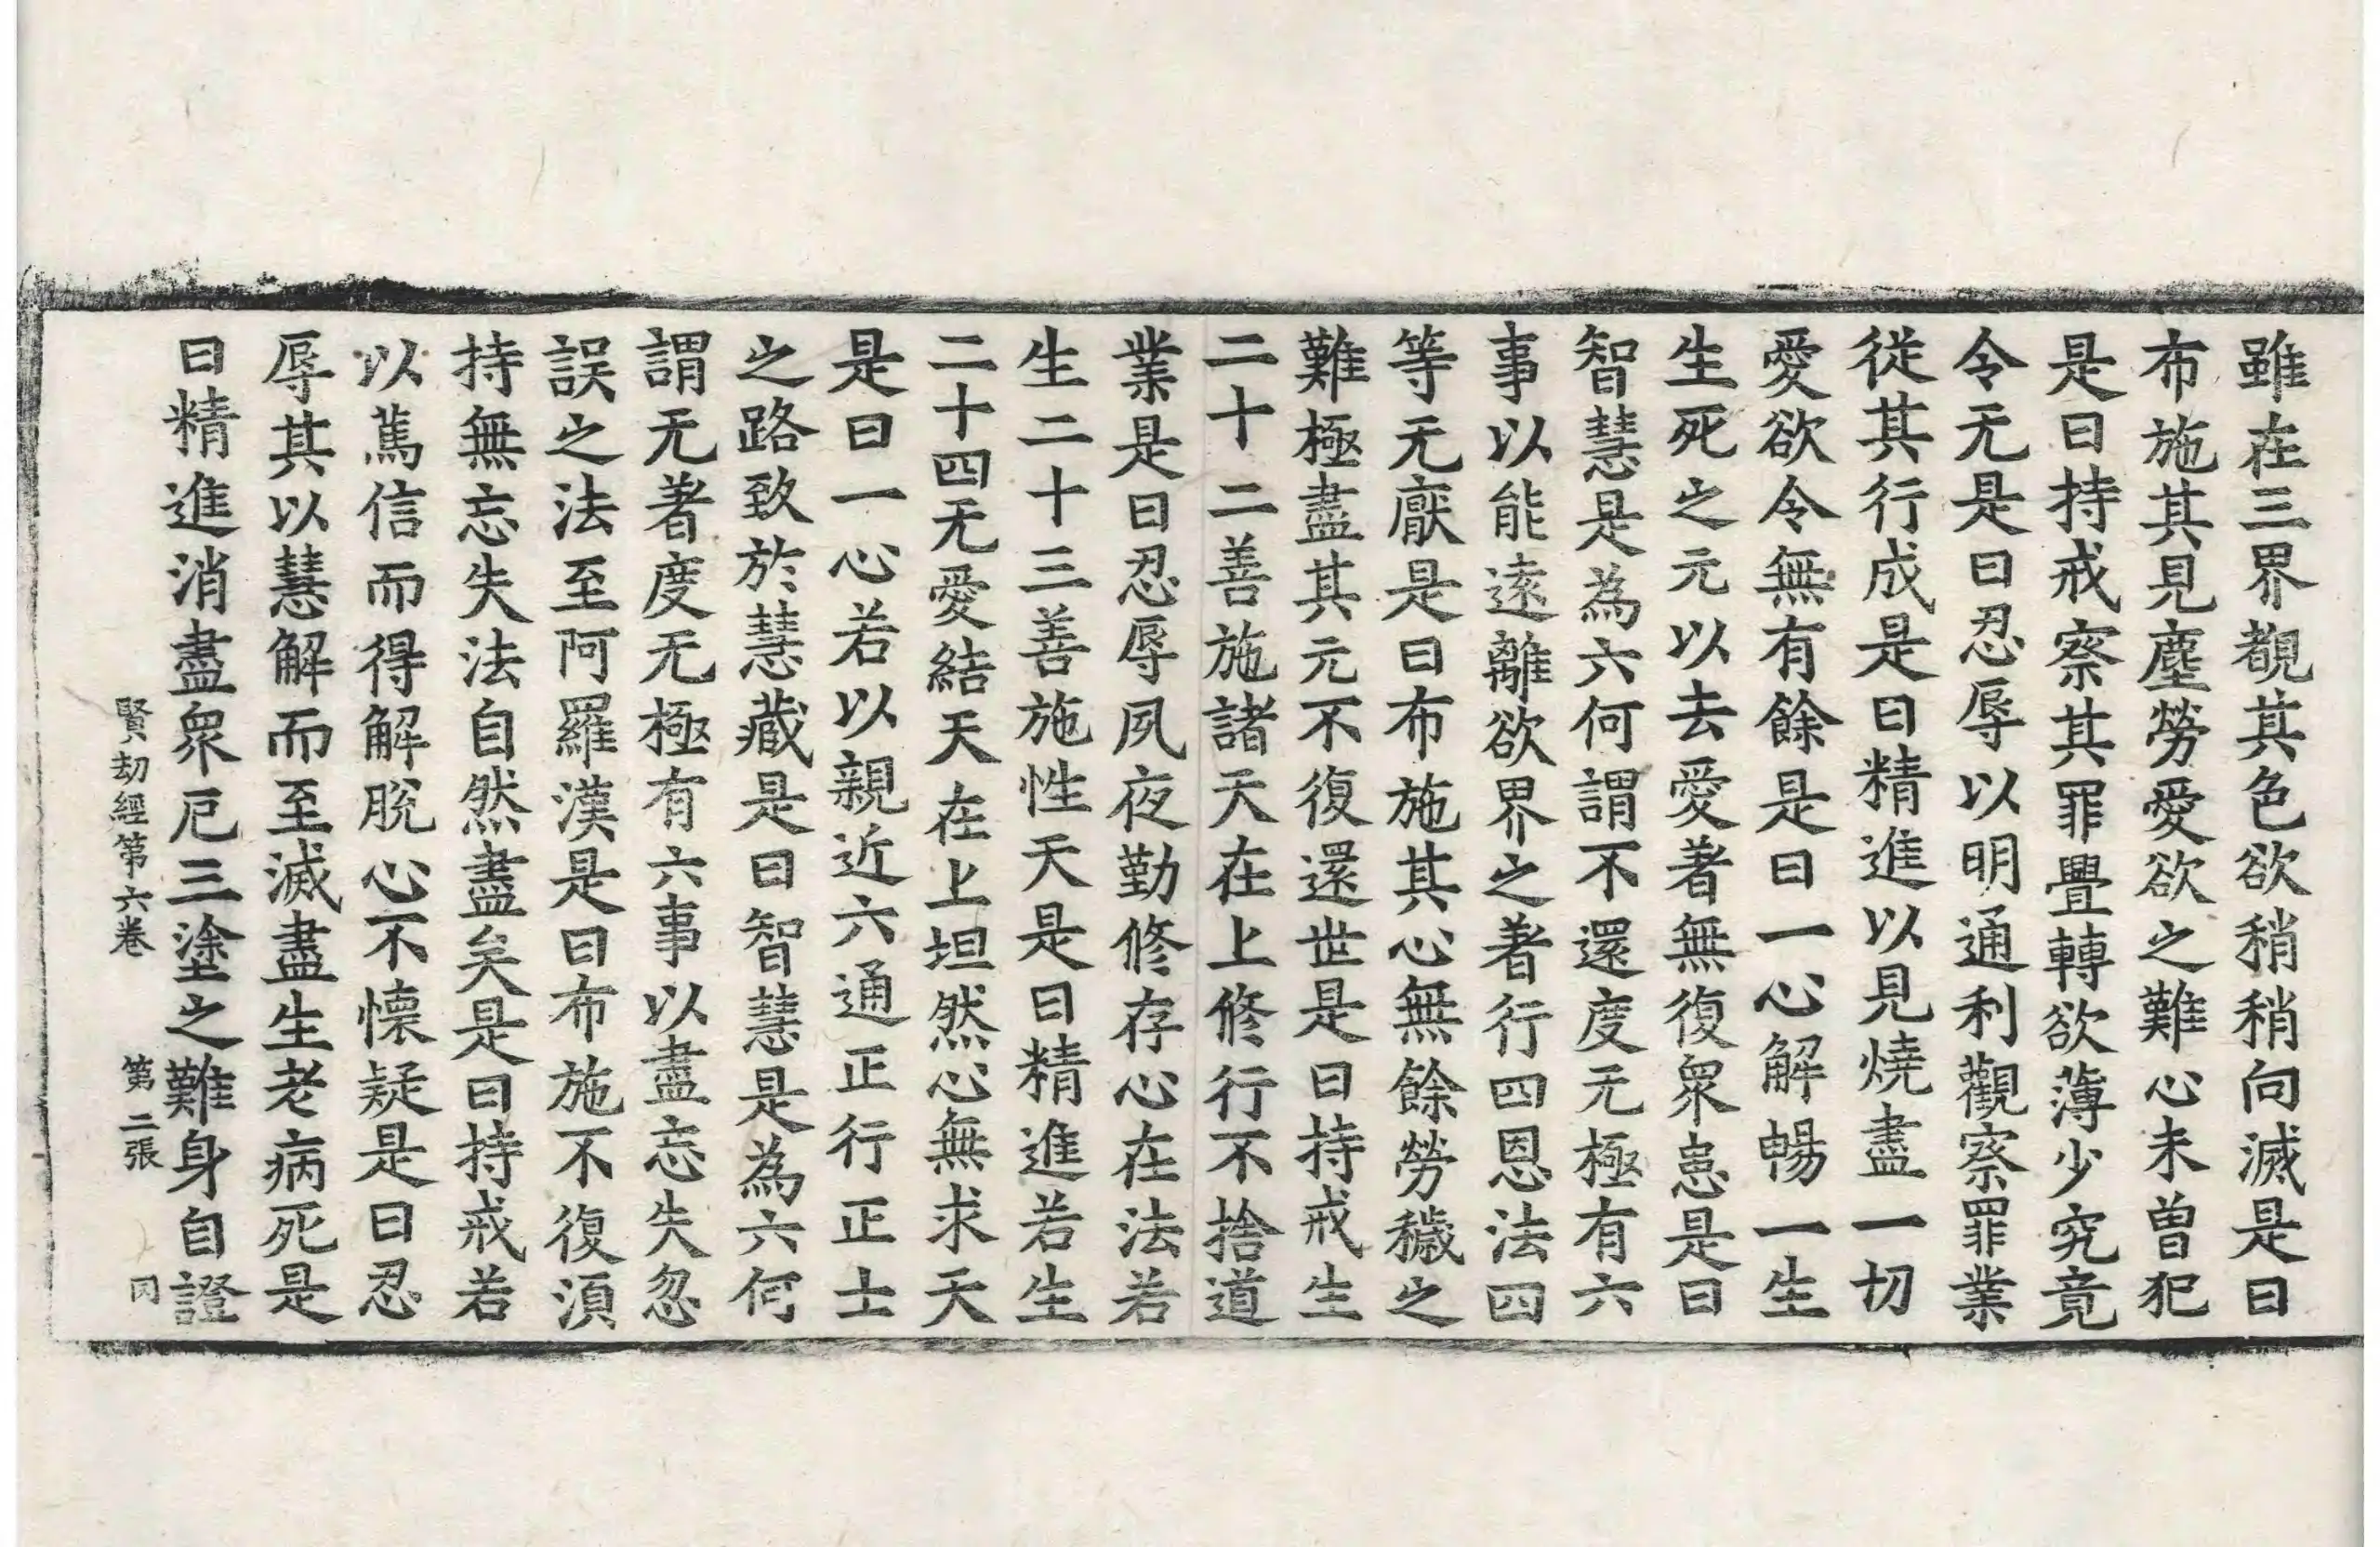 雖在三界覩其色欲稍稍向滅是曰
布施其見塵勞愛欲之難心未曾犯
是曰持戒察其罪舋轉欲薄少究竟
令无是曰忍辱以明通利觀察罪業
從其行成是曰精進以見燒盡一切
愛欲令無有餘是曰一心解暢一生
生死之元以去愛著無復衆患是曰
智慧是為六何謂不還度无極有六
事以能遠離欲界之著行四恩法四
等无厭是曰布施其心無餘勞穢之
難極盡其元不復還世是曰持戒生
二十二善施諸天在上修行不捨道
業是曰忍辱夙夜勤修存心在法若
生二十三善施性天是曰精進若生
二十四无愛結天在上坦然心無求天
是曰一心若以親近六通正行正士
之路致於慧藏是曰智慧是為六何
謂无著度无極有六事以盡忘失忽
誤之法至阿羅漢是曰布施不復湏
持無忘失法自然盡矣是曰持戒若
以篤信而得解脫心不懷疑是曰忍
辱其以慧解而至滅盡生老病死是
曰精進消盡衆厄三塗之難身自證
賢劫經第六卷 第二張 罔